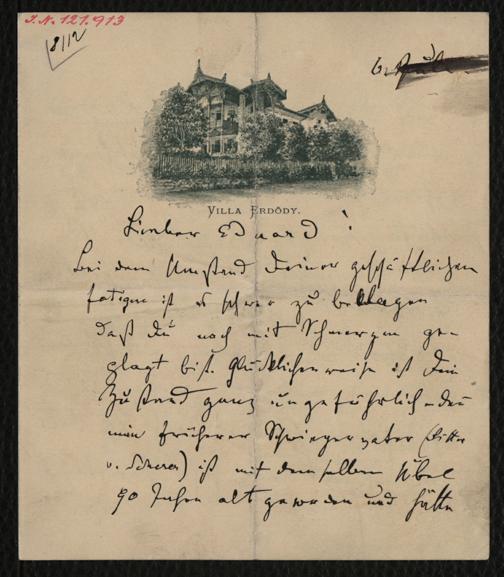 I.N. 121.913
8/12
6.
VILLA ERDÖDY.
Lieber Eduard!
bei dem Umstand Deiner geschäftlichen
fatigue ist es schwer zu beklagen
daß Du noch mit Schmerzen ge-
plagt bist. Glücklicherweise ist Dein
Zustand ganz ungefährlich – den
mein früherer Schwiegervater (Ritter
v. Scherer) ist mit demselben Übel
90 Jahre alt geworden und hätte